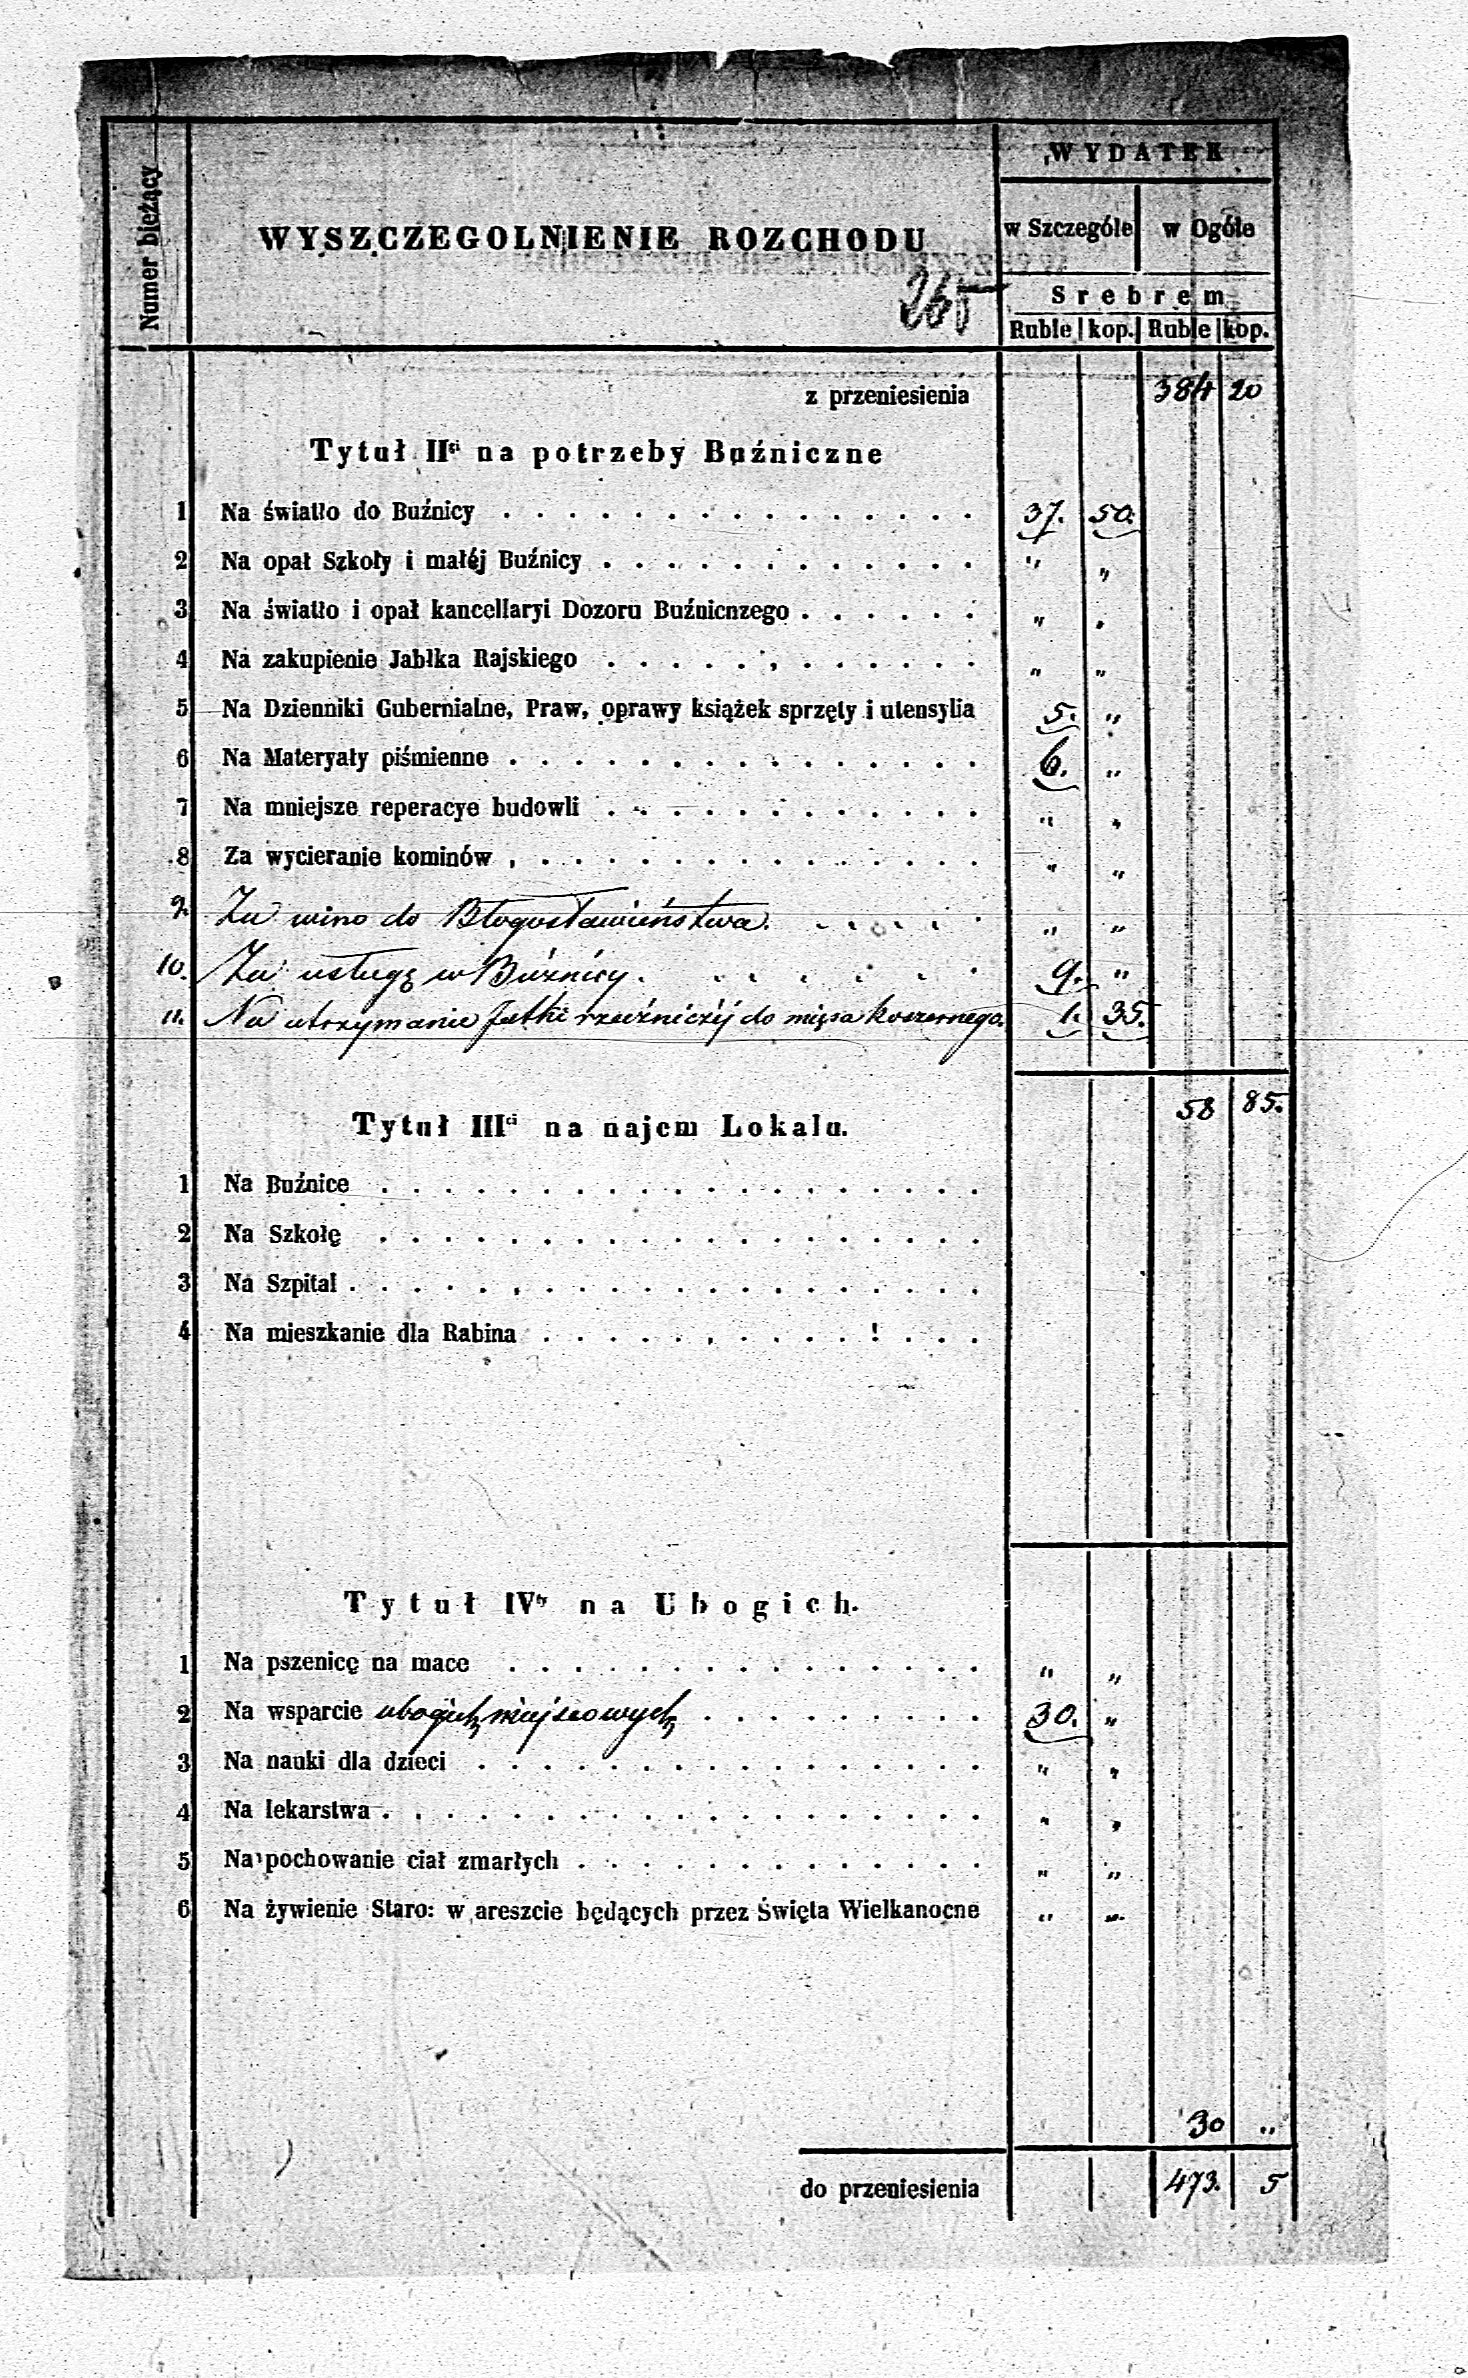 Numer bieżący
WYSZCZEGOLNIENIE ROZCHODU
WYDATEK
w Szczególe w Ogóle
Srebrem
Ruble kop. Ruble kop.
265
z przeniesienia 384 20
Tytuł IIgi na potrzeby Buźniczne
1 Na światło do Buźnicy . . . . . . . . . . . . . . . 37. 50.
2 Na opał Szkoły i małéj Buźnicy . . . . . . . . . . . . „ „
3 Na światło i opał kancellaryi Dozoru Buźnicnzego . . . . . . „ „
4 Na zakupienie Jabłka Rajskiego . . . . . . . . . . . . „ „
5 Na Dzienniki Gubernialne, Praw, oprawy książek sprzęty i utensylia 5. „
6 Na Materyały piśmienne . . . . . . . . . . . . . . . 6. „
7 Na mniejsze reperacye budowli . . . . . . . . . . . . „ „
8 Za wycieranie kominów . . . . . . . . . . . . . . . „ „
9. Za wino do Błogosławieństwa. . . . . . „ „
10. Za usługę w Buźnicy. . . . . . . 9. „
11. Na utrzymanie Jatki rzeźniczéj do mięsa koszernego. 1. 35.
58 85.
Tytuł IIIci na najem Lokalu.
1 Na Buźnice . . . . . . . . . . . . . . . . . . .
2 Na Szkołę . . . . . . . . . . . . . . . . . . .
3 Na Szpital . . . . . . . . . . . . . . . . . . . .
4 Na mieszkanie dla Rabina . . . . . . . . . . . ! . . .
Tytuł IVty na Ubogich.
1 Na pszenicę na mace . . . . . . . . . . . . . . . „ „
2 Na wsparcie ubogich miejscowych . . . . . . . . . 30. „
3 Na nauki dla dzieci . . . . . . . . . . . . . . . . „ „
4 Na lekarstwa . . . . . . . . . . . . . . . . . . . „ „
5 Na pochowanie ciał zmarłych . . . . . . . . . . . . . „ „
6 Na żywienie Staro: w areszcie będących przez Święta Wielkanocne „ „
30 „
do przeniesienia 473. 5